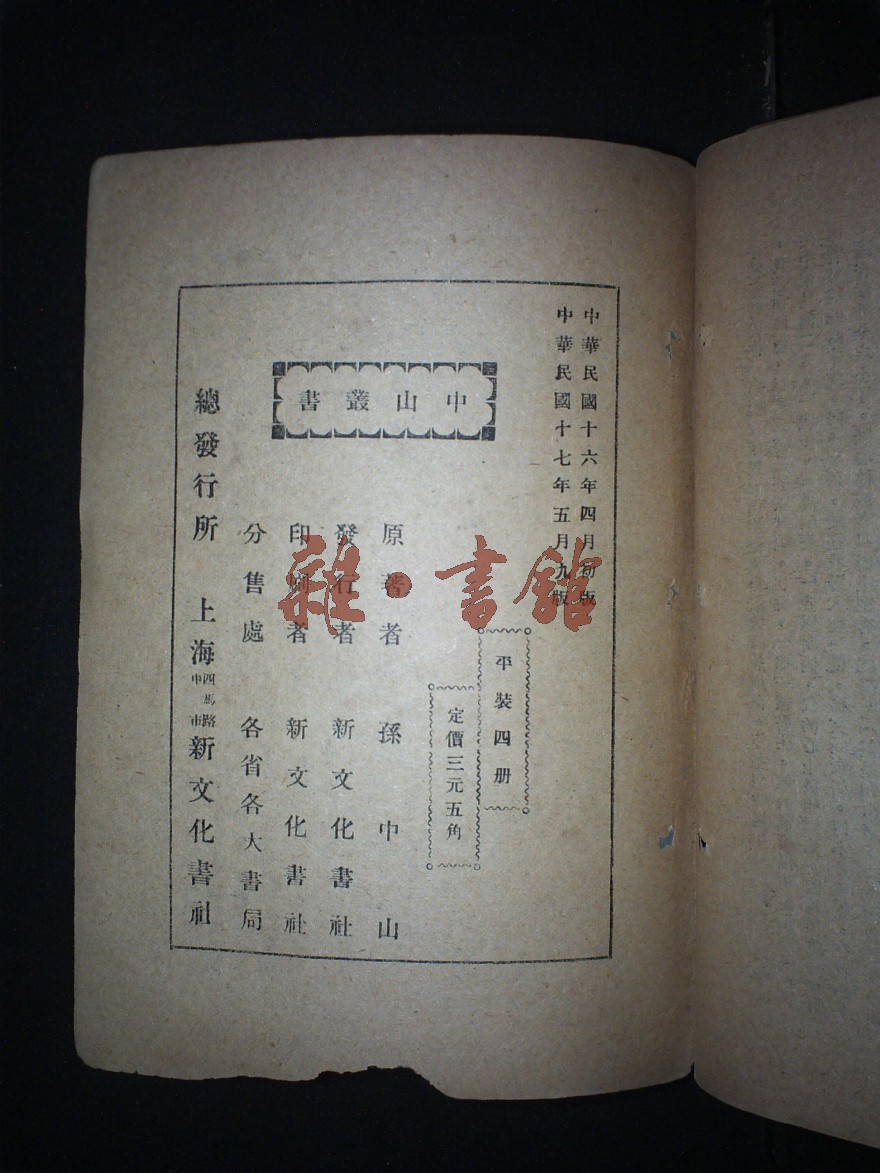 中華民國十六年四月初版
中華民國十七年五月九版
平裝四册
定價三元五角
中山叢書
原著者 孫中山
發行者 新文化書社
印刷者 新文化書社
分售處 各省各大書局
總發行所 上海四馬路中市新文化書社
雜·書館